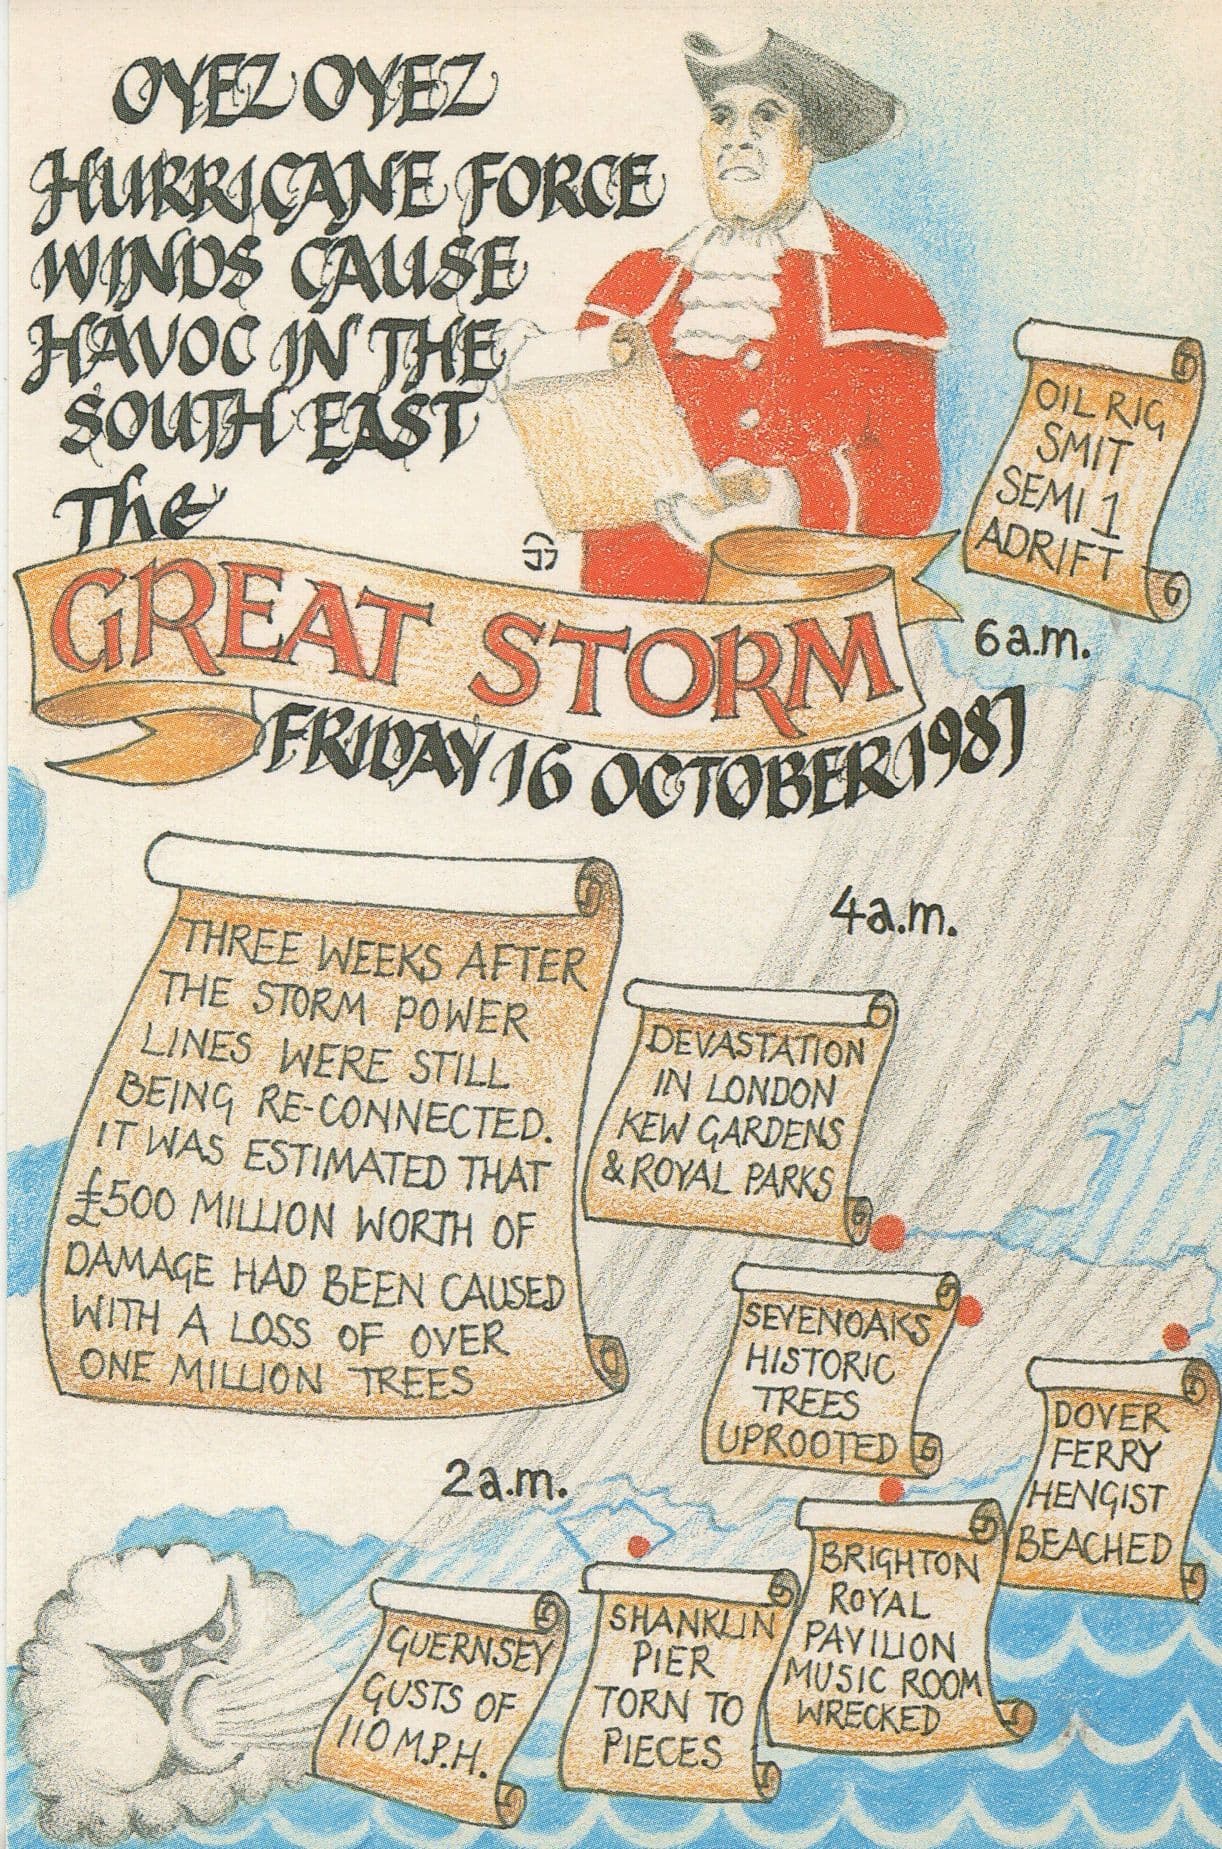 OYEZ OYEZ
HURRICANE FORCE
WINDS CAUSE
HAVOC IN THE
SOUTH EAST
The
GREAT STORM
FRIDAY 16 OCTOBER 1987
OIL RIG
SMIT
SEMI 1
ADRIFT
6a.m.
4a.m.
THREE WEEKS AFTER
THE STORM POWER
LINES WERE STILL
BEING RE-CONNECTED.
IT WAS ESTIMATED THAT
£500 MILLION WORTH OF
DAMAGE HAD BEEN CAUSED
WITH A LOSS OF OVER
ONE MILLION TREES
DEVASTATION
IN LONDON
KEW GARDENS
& ROYAL PARKS
SEVENOAKS
HISTORIC
TREES
UPROOTED
DOVER
FERRY
HENGIST
BEACHED
2a.m.
BRIGHTON
ROYAL
PAVILION
MUSIC ROOM
WRECKED
SHANKLIN
PIER
TORN TO
PIECES
GUERNSEY
GUSTS OF
110 M.P.H.